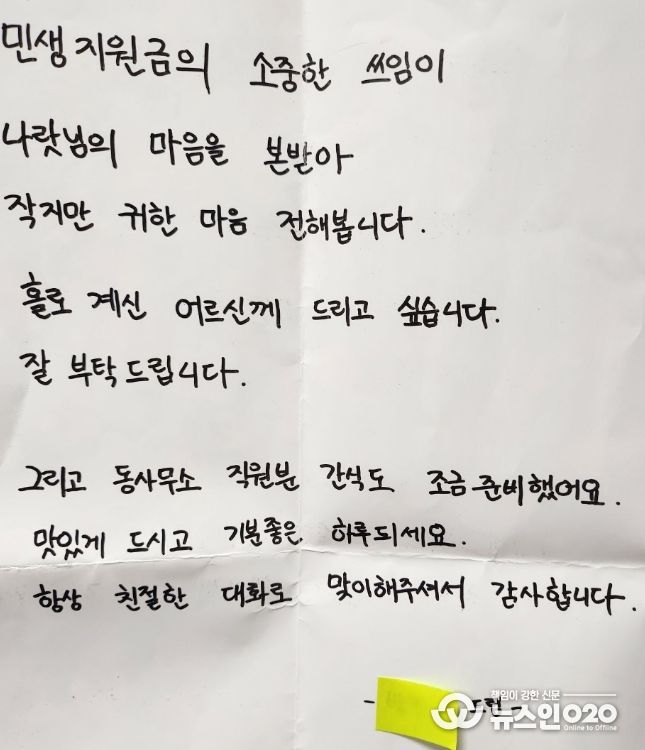 민생지원금의 소중한 쓰임이
나랏님의 마음을 본받아
작지만 귀한 마음 전해봅니다.
홀로 계신 어르신께 드리고 싶습니다.
잘 부탁드립니다.
그리고 동사무소 직원분 간식도 조금 준비했어요.
맛있게 드시고 기분좋은 하루되세요.
항상 친절한 대화로 맞이해주셔서 감사합니다.
책임이 강한 신문
뉴스인O2O
Online to Offline